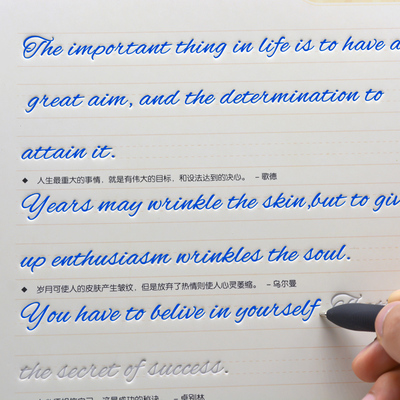 The important thing in life is to have a
great aim, and the determination to
attain it.
◆ 人生最重大的事情，就是有伟大的目标，和设法达到的决心。 －歌德
Years may wrinkle the skin,but to giv
up enthusiasm wrinkles the soul.
◆ 岁月可使人的皮肤产生皱纹，但是放弃了热情则使人心灵萎缩。 －乌尔曼
You have to belive in yourself
the secret of success.
卓别林